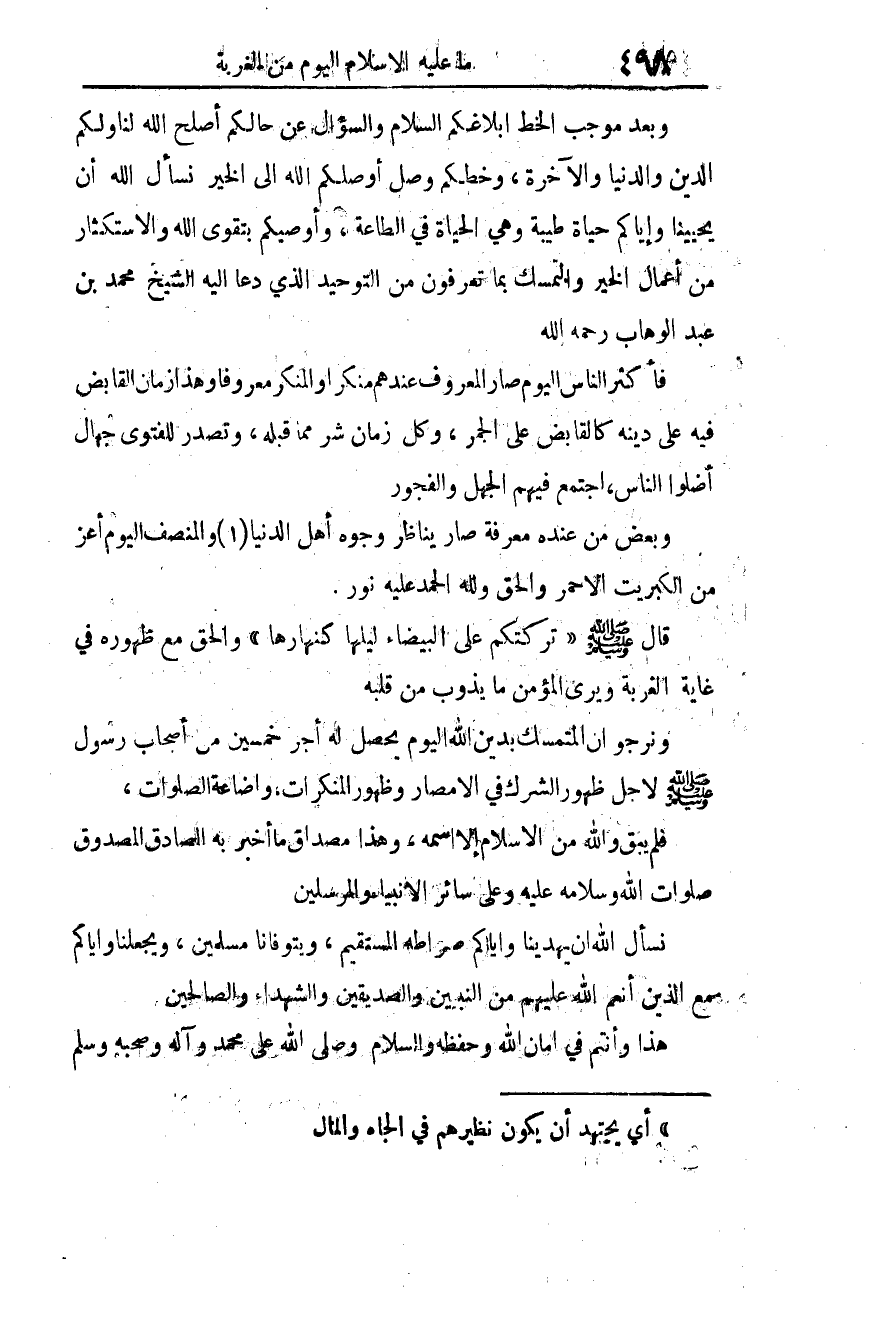 ٤٩٨ ما عليه الاسلام اليوم من الغربة
وبعد موجب الخط ابلاغكم السلام والسؤال عن حالكم أصلح الله لنا ولكم
الدين والدنيا والآخرة ، وخطكم وصل أوصلكم الله الى الخير نسأل الله أن
يحيينا وإياكم حياة طيبة وهي الحياة في الطاعة ، وأوصيكم بتقوى الله والاستكثار
من أعمال الخير والتمسك بما تعرفون من التوحيد الذي دعا اليه الشيخ محمد بن
عبد الوهاب رحمه الله
فأكثر الناس اليوم صار المعروف عندهم منكرا والمنكر معروفا وهذا زمان القابض
فيه على دينه كالقابض على الجمر ، وكل زمان شر مما قبله ، وتصدر للفتوى جهال
أضلوا الناس ، اجتمع فيهم الجهل والفجور
وبعض من عنده معرفة صار يناظر وجوه أهل الدنيا (١) والمنصف اليوم أعز
من الكبريت الاحمر والحق ولله الحمد عليه نور .
قال ﷺ « تركتكم على البيضاء ليلها كنهارها » والحق مع ظهوره في
غاية الغربة ويرى المؤمن ما يذوب من قلبه
ونرجو ان المتمسك بدين الله اليوم يحصل له أجر خمسين من أصحاب رسول
ﷺ لاجل ظهور الشرك في الامصار وظهور المنكرات ، واضاعة الصلوات ،
فلم يبق والله من الاسلام إلا اسمه ، وهذا مصداق ما أخبر به الصادق المصدوق
صلوات الله وسلامه عليه وعلى سائر الأنبياء والمرسلين
نسأل الله ان يهدينا واياكم صراطه المستقيم ، ويتوفانا مسلمين ، ويجعلنا واياكم
مع الذين أنعم الله عليهم من النبيين والصديقين والشهداء والصالحين
هذا وأنتم في امان الله وحفظه والسلام وصلى الله على محمد وآله وصحبه وسلم
» أي يجتهد أن يكون نظيرهم في الجاه والمال